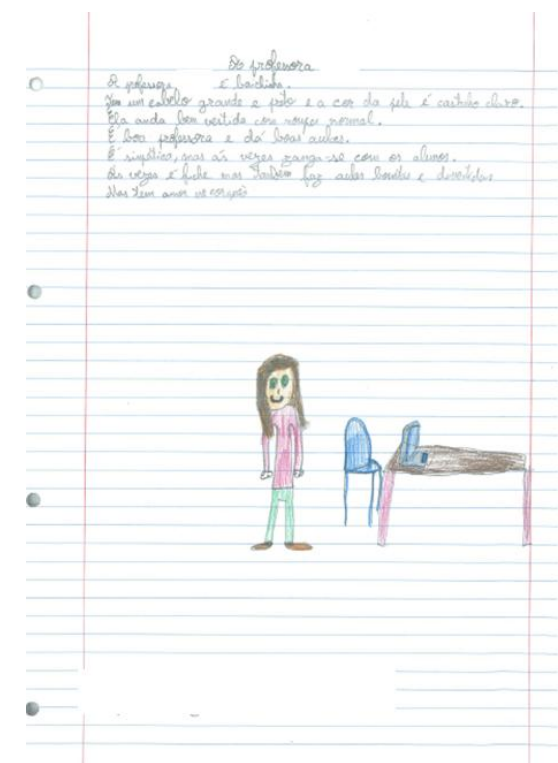 A professora
A professora é baixinha.
Tem um cabelo grande e preto e a cor da pele é castanho claro.
Ela anda bem vestida com roupa normal.
É boa professora e dá boas aulas.
É simpática, mas às vezes zanga-se com os alunos.
Às vezes é fixe mas também faz aulas bonitas e divertidas
Mas tem amor no coração